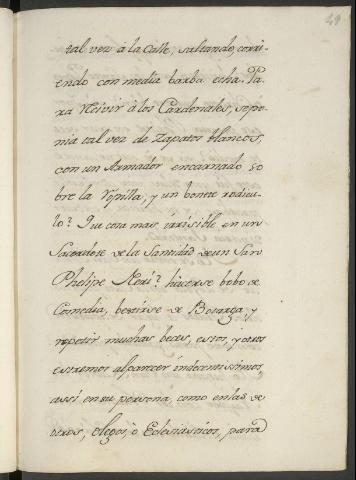 49
tal vez á la Calle, saltando, corri-
endo con media barba echa. Pa-
ra reivir á los Cardenales, sepo-
nia tal vez de Zapatos blancos,
con un Armador encarnado so-
bre la Ropilla, y un bonete redicu-
lo? Que cosa mas irrisible en un
Sacerdote de la Santidad de un San
Phelipe Neri? hacerse bobo de
Comedia, bestirse de Botarga, y
repetir muchas beces, estos, y otros
estremos alparecer indecentissimos
assi en su persona, como en las de
otros, Clegos, ò Eclesiasticos, para